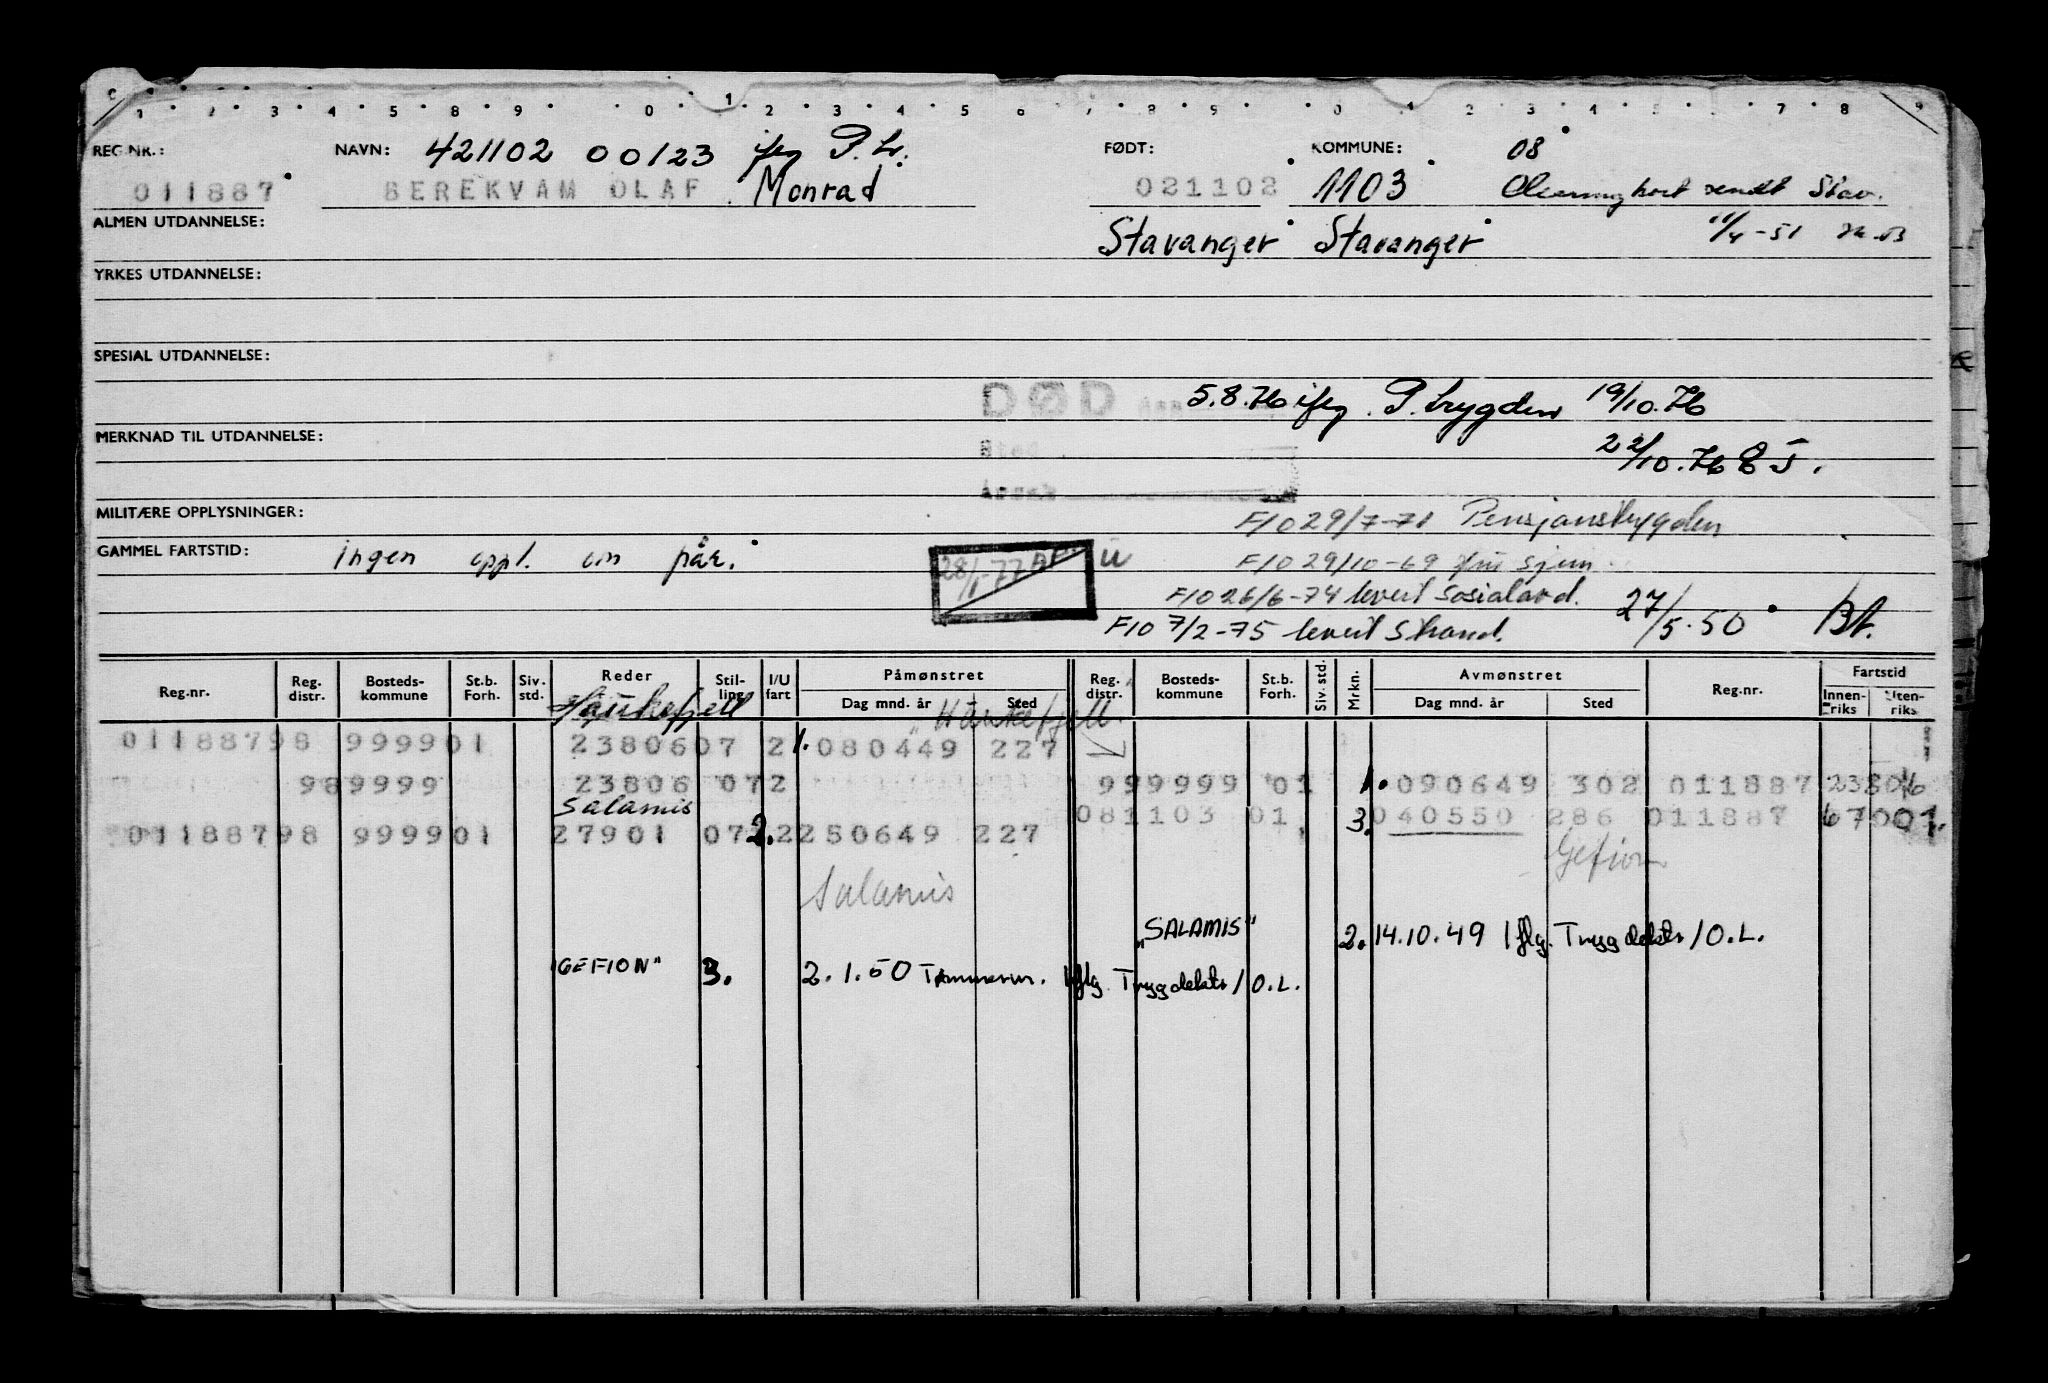 1 2 3 4 5 8 9 0 1 2 3 4 5 6 7 8 9 0 1 2 3 4 5 6 7 8 9
REG.NR.: NAVN: 421102 00123 ifg P. tr. FØDT: KOMMUNE: 08
011887 BEREKVAM OLAF Monrad 021102 1103 Clearingkort sendt Stav.
ALMEN UTDANNELSE: Stavanger Stavanger 11/4-51
YRKES UTDANNELSE:
SPESIAL UTDANNELSE:
DØD den 5.8.76 ifg. P. trygden 19/10.76
MERKNAD TIL UTDANNELSE: 22/10.76
Sted
Årsak
MILITÆRE OPPLYSNINGER: F10 29/7-71 Pensjonstrygden
GAMMEL FARTSTID: ingen oppl. om påx. 28/1-77 U F10 29/10-69
F10 26/6-74 levert Sosialavd. 27/5.50 Bt.
F10 7/2-75 levert Strand.
Reg.nr. Reg. distr. Bosteds-kommune St.b. Forh. Siv. std. Reder Stil-ling I/U fart Påmønstret Dag mnd. år Sted Reg. distr. Bosteds-kommune St.b. Forh. Siv. std. Mrkn. Avmønstret Dag mnd. år Sted Reg.nr. Fartstid Innen-riks Uten-riks
Haukefjell "Haukefjell"
01188798 999901 2380607 2 1. 080449 227
989999 23806 072 999999 01 1. 090649 302 011887 23806
Salamis 081103 01 3. 040550 286 011887 67001.
01188798 999901 27901 07 2. 2250649 227
Gefion
Salamis
"SALAMIS" 2. 14.10.49 Iflg. Trygdektr/O.L.
"GEFION" 3. 2.1.50 Tømmerm. Iflg. Trygdektr/O.L.